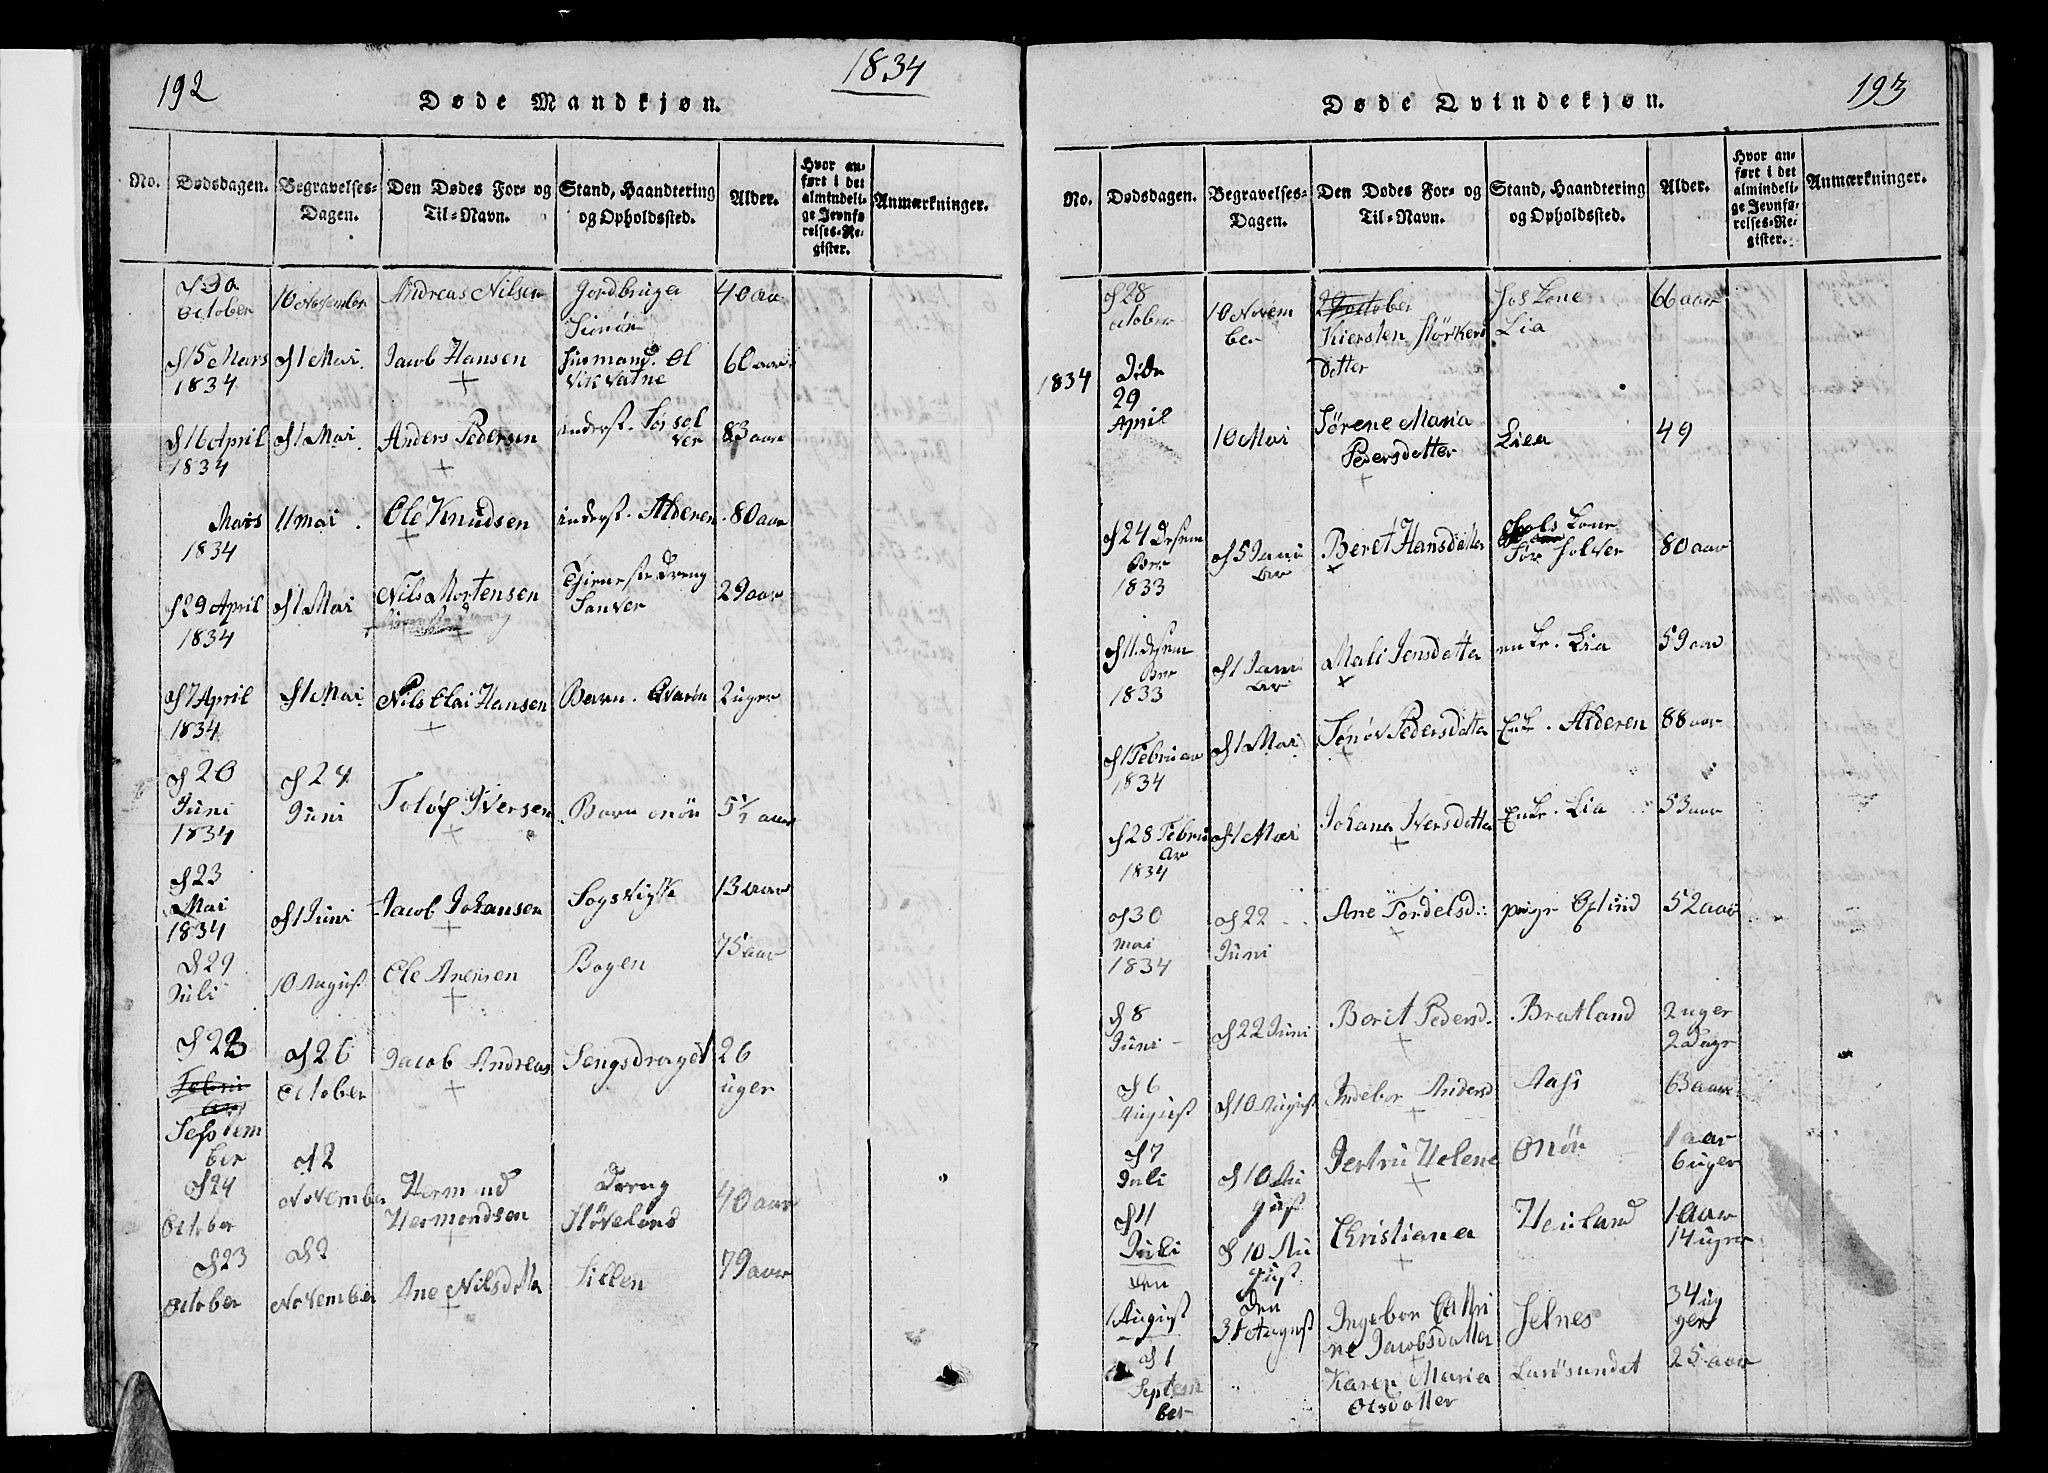 192
1834
Døde Mandkjøn.
No.
Dødsdagen.
Begravelses-
Dagen.
Den Dødes For- og
Til-Navn.
Stand, Haandtering
og Opholdssted.
Alder.
Hvor an-
ført i det
almindeli-
ge Jevnfø-
relses-Re-
gister.
Anmærkninger.
October
10 November
Andreas Nilsen
40 aar
d 15 Mars
1834
d 1 Mai.
Jacob Hansen
Vikvatne
60 aar
d 16 April
1834
d 1 Mai
Anders Pedersen
inderst.
83 aar
Mars
1834
11 mai
Ole Knudsen
inderst. Alderen
80 aar
d 29 April
1834
d 1 Mai
Nils Mortensen
Tjeneste Dreng
Sanver
29 aar
d 7 April
1834
d 1 Mai
Nils Elai Hansen
Barn. Qvarøn
2 uger
d 20
Juni
1834
d 24
Juni
Iversen
Barn onøn
aar
d 23
Mai
1834
d 1 Juni
Jacob Johansen
13 aar
d 29
Juli
10 August
Ole Arensen
Bogen
75 aar
d 23
Septem
ber
d 26
October
Jacob Andreas
26
uger
d 24
October
d 2
November
Hermond
Hermondsen
Dreng
40 aar
d 23
October
d 2
November
Ane Nilsdatter
79 aar
193
Døde Qvindekjøn.
No.
Dødsdagen.
Begravelses-
Dagen.
Den Dødes For- og
Til-Navn.
Stand, Haandtering
og Opholdssted.
Alder.
Hvor an-
ført i det
almindeli-
ge Jevnfø-
relses-Re-
gister.
Anmærkninger.
d 28
october
10 Novem
ber
Kiersten Størkers
Datter
Kone
Lia
66 aar
1834
29
April
10 Mai
Sørene Maria
Pedersdatter
Liea
49
d 24 Desem
Ber
1833
d 5 Janu
ar
Beret Hansdatter
Kone
80 aar
d 11 Desem
Ber
1833
d 1 Janu
ar
Mali Jensdatter
enke. Lia
59 aar
d 1 Februar
1834
d 1 Mai
Pedersdatter
Enk. Alderen
88 aar
d 28 Febru
ar
1834
d 1 Mai
Johana Iversdatter
Enke. Lia
53 aar
d 30
mai
1834
d 22
Juni
Ane Tordelsd.
52 aar
d 8
Juni
d 22 Juni
Berit Pedersd.
Bratland
2 uger
2 Dage
d 6
August
d 10 August
Indebor Andersd
63 aar
d 7
Juli
d 10 Au
gust
Jertru Helene
Onøn
1 aar
6 uger
d 11
Juli
d 10 Au
gust
Christiana
1 aar
14 uger
den
1 August
Den
31 August
Ingebor Cathri
ne Jacobsdatter
Selnes
34 ug
ger
d 1
Septem
ber
Karen Maria
Olsdatter
25 aar